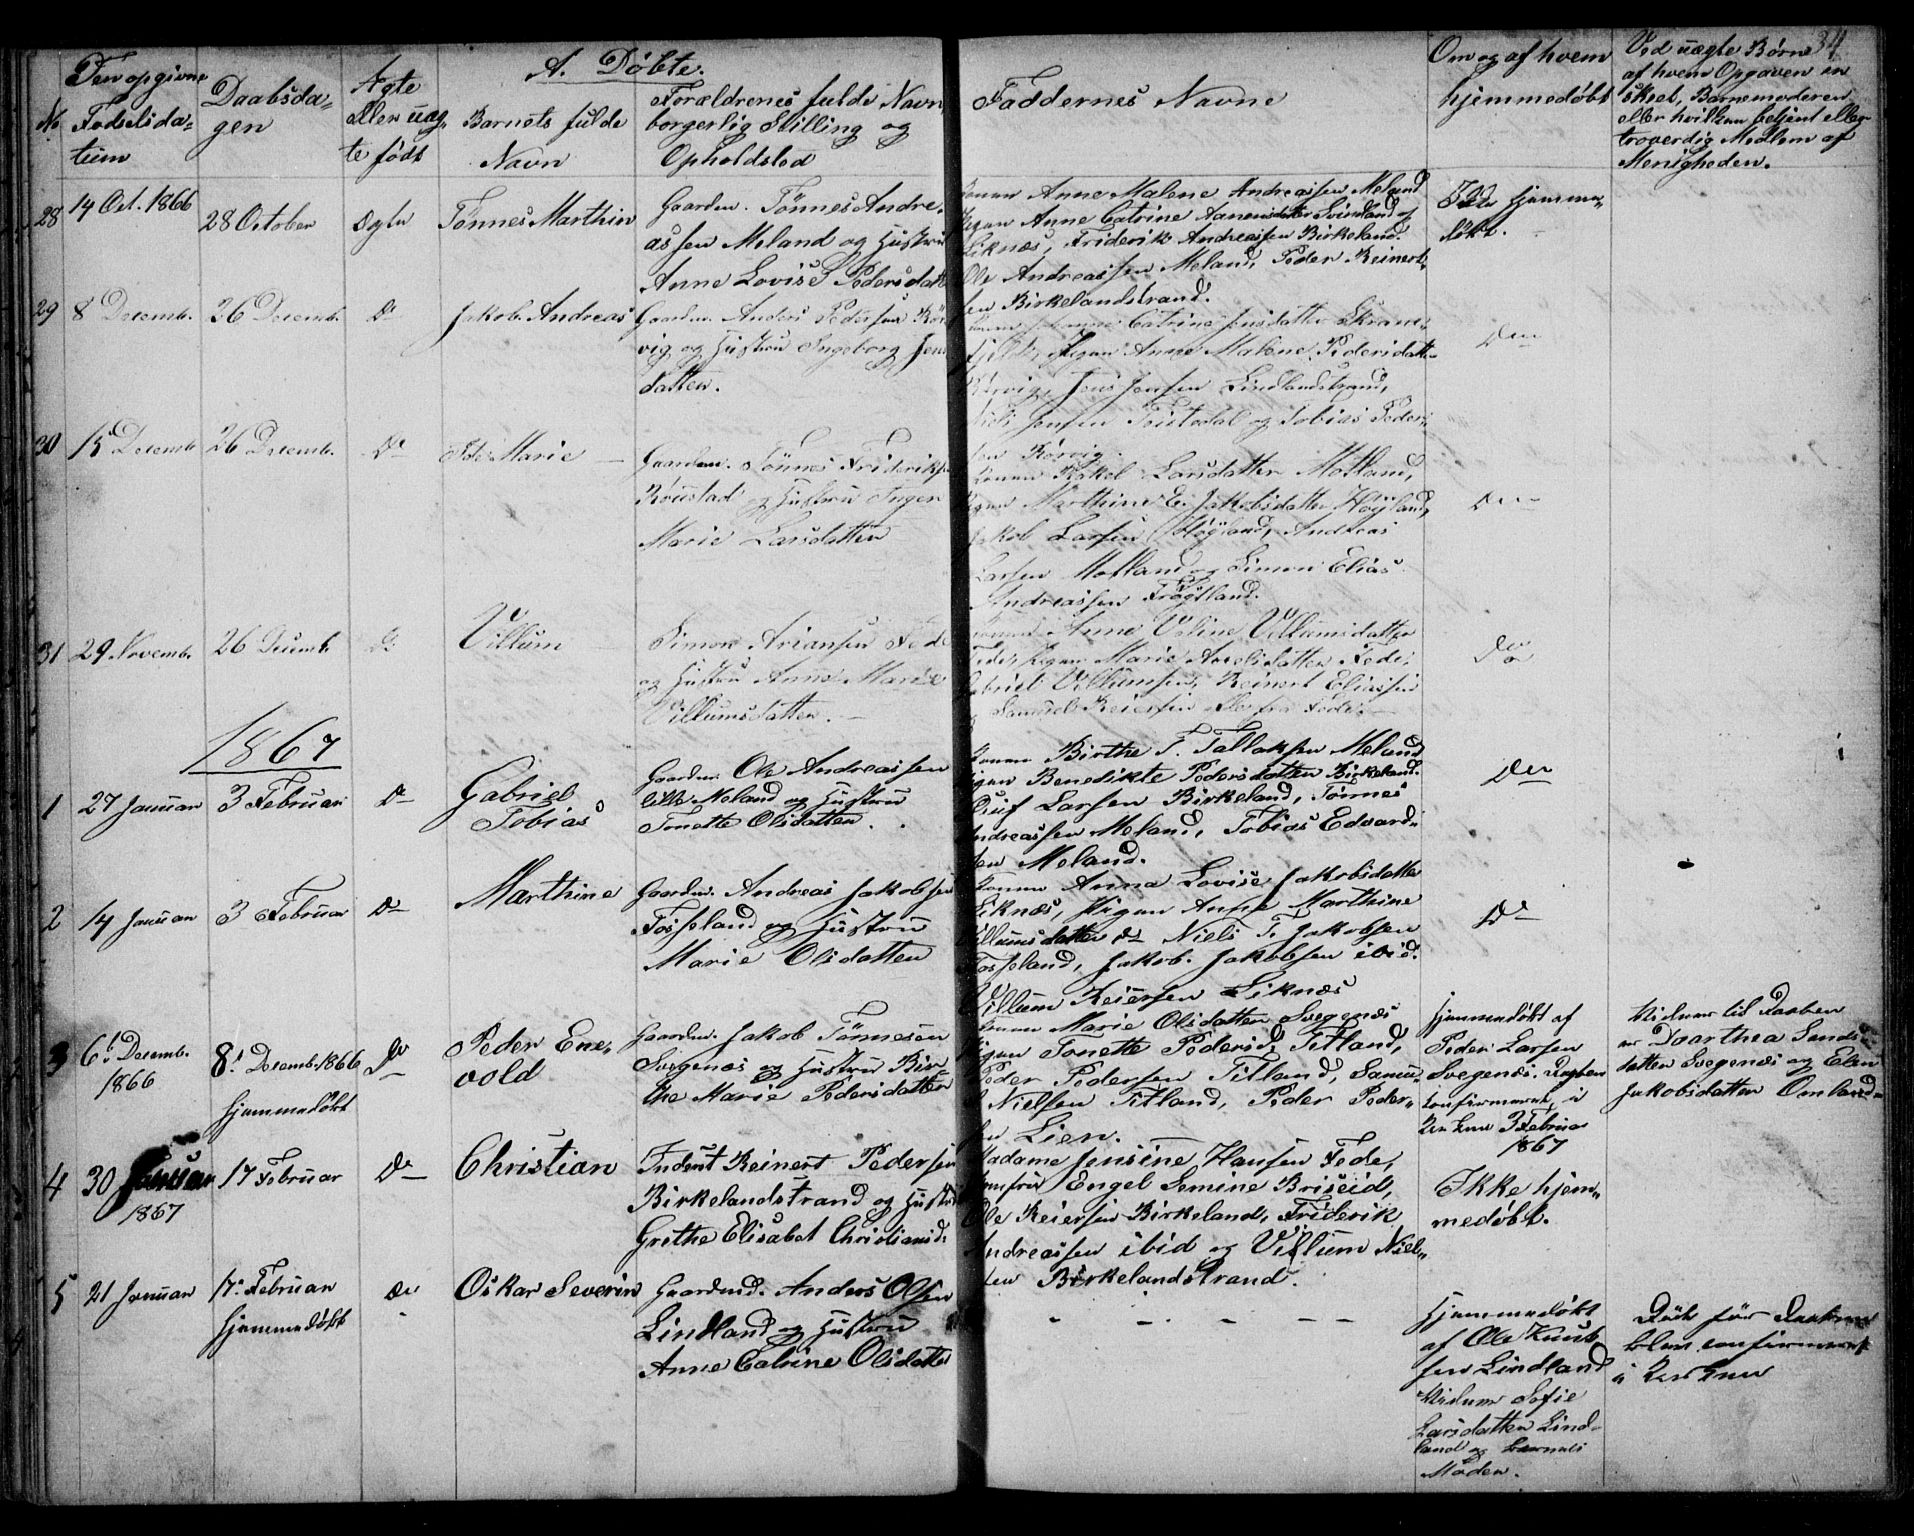 34
A. Döbte.
No
Den opgivne
Fødselsda-
tum
Daabsda-
gen
Ægte
eller uæg-
te født
Barnets fulde
Navn
Forældrenes fulde Navn,
borgerlig Stilling og
Opholdsted
Faddernes Navne
Om og af hvem
hjemmedøbt
Ved uægte Børn
af hvem Opgaven er
skeet, Barnemoderen
eller hvilken betjent eller
troværdig Medlem af
Menigheden.
28
14 Oct. 1866
28 October
Ægte
Tönnes Marthin
Gaardm. Tönnes Andre-
assen Meland og Hustru
Anne Lovise Pedersdatt
Konen Anne Malene Andreassen Meland
Pigen Anne Catrine Aanensdatter Svindland af
Liknæs, Friderik Andreassen Birkeland.
Ole Andreassen Meland, Peder Reinert-
sen Birkelandstrand.
Ikke hjemme-
døbt.
29
8 Decemb.
26 Decemb.
Do
Jakob Andreas
Gaardm. Anders Pedersen Rör-
vig og Hustru Ingeborg Jens
datter.
Catrine Jensdatter
Pigen Anne Malene Pedersdatt-
Rörvig, Jens Jensen Lindlandstrand,
Jensen og Tobias Peder-
sen Rörvig.
Do
30
15 Decemb
26 Decemb.
Do
Ide Marie
Gaardm. Tönnes Frideriks
Röiestad og Hustru Inger
Marie Larsdatter
Konen Rakel Larsdatter Motland,
Pigen Marthine E. Jakobsdatter Höyland,
Jakob Larsen Höyland, Andreas
Larsen Motland og Simon Elias
Andreassen Fröytland.
Do
31
29 Novemb.
26 Decemb.
Do
Villum
Simon Ariansen Fede
og Hustru Anne Marie
Villumsdatter.
Konen Anne Veline Villumsdatter
Fede, Pigen Marie Axelsdatter Fede,
Gabriel Villumsen, Reinert Eliassen
og Samuel Reiersen Alle fra Fede.
Do
1867
1
27 Januar
3 Februar
Do
Gabriel
Tobias
Gaardm. Ole Andreassen
lille Meland og Hustru
Tonette Olsdatter.
Konen Birthe T. Tallaksen Meland
Pigen Benedikte Pedersdatter Birkeland.
Oluf Larsen Birkeland, Tönnes
Andreassen Meland, Tobias Edvard-
sen Meland.
Do
2
14 Januar
3 Februar
Do
Marthine
Gaardm. Andreas Jakobsen
Fosseland og Hustru
Marie Olsdatter
Konen Anna Lovise Jakobsdatter
Liknæs, Pigen Anne Marthine
Villumsdatter Do Niels T. Jakobsen
Fosseland, Jakob Jakobsen ibid.
Villum Reiersen Liknæs
Do
3
6. Decemb.
1866
8. Decemb. 1866
hjemmedøbt
Do
Peder Ene-
vold
Gaardm. Jakob Tönnesen
Svegenæs og Hustru Bir-
the Marie Pedersdatter
Konen Marie Olsdatter Svegenæs
Pigen Tonette Pedersd. Titland,
Peder Pedersen Titland, Samu-
el Nielsen Titland, Peder Peder-
sen Lien.
hjemmedøbt af
Peder Larsen
Svegenæs. Daaben
confirmeret i
Kirken 3 Februar
1867
Vidner til Daaben
er Doorthea Sends-
datter Svegenæs og Elen
Jakobsdatter Omland.
4
30 Januar
1867
17 Februar
Do
Christian
Inderst Reinert Pedersen
Birkelandstrand og Hustru
Grethe Elisabet Christiansd.
Madame Jensine Hansen Fede,
Jomfru Engel Semine Briseid,
Ole Reiersen Birkeland, Friderik
Andreassen ibid og Villum Niel-
sen Birkelandstrand.
Ikke hjem-
medøbt.
5
21 Januar
17. Februar
hjemmedøbt
Do
Oskar Severin
Gaardmd. Anders Olsen
Lindland og Hustru
Anne Catrine Olsdatter
- - - - - -
Hjemmedøbt
af Ole Knud-
sen Lindland
Vidner Sofie
Larsdatter Lind-
land og Barnets
Moder.
Døde før Daaben
blev confirmeret
i Kirken